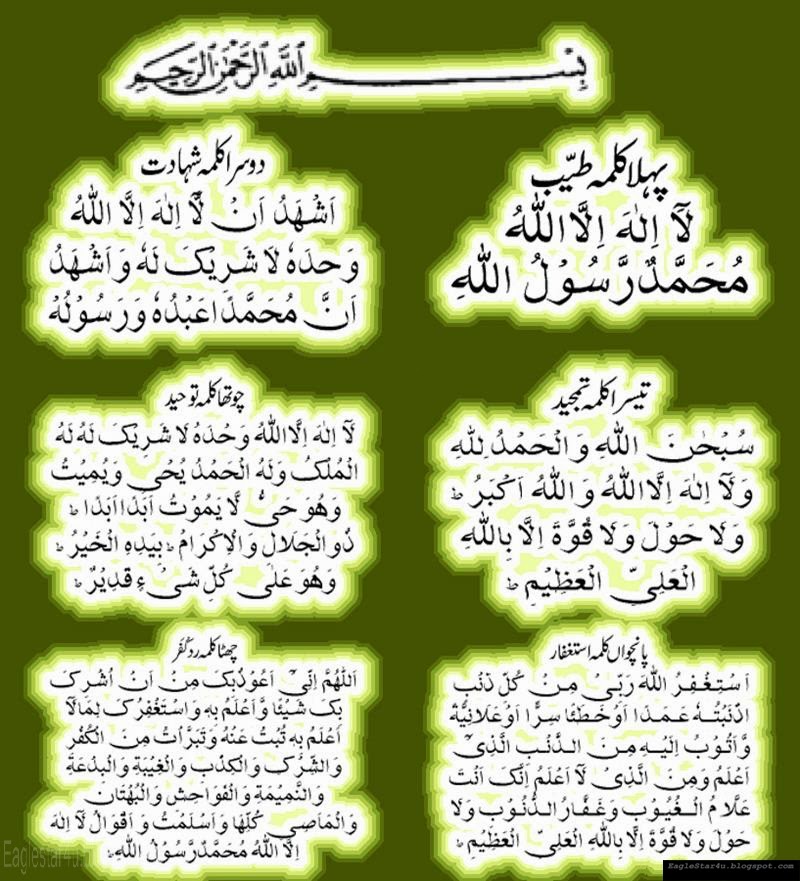 بِسْمِ اللهِ الرَّحْمٰنِ الرَّحِيْمِ
پہلا کلمہ طیّب
لَآ اِلٰهَ اِلَّا اللهُ
مُحَمَّدٌ رَّسُوْلُ اللهِ
دوسرا کلمہ شہادت
اَشْهَدُ اَنْ لَّآ اِلٰهَ اِلَّا اللهُ
وَحْدَهٗ لَا شَرِيْكَ لَهٗ وَ اَشْهَدُ
اَنَّ مُحَمَّدًا عَبْدُهٗ وَ رَسُوْلُهٗ
تیسرا کلمہ تمجید
سُبْحٰنَ اللهِ وَ الْحَمْدُ لِلّٰهِ
وَلَآ اِلٰهَ اِلَّا اللهُ وَ اللهُ اَكْبَرُ ؕ
وَلَا حَوْلَ وَلَا قُوَّةَ اِلَّا بِاللهِ
الْعَلِىِّ الْعَظِيْمِ ؕ
چوتھا کلمہ توحید
لَآ اِلٰهَ اِلَّا اللهُ وَحْدَهٗ لَا شَرِيْكَ لَهٗ لَهُ
الْمُلْكُ وَلَهُ الْحَمْدُ يُحْىٖ وَ يُمِيْتُ
وَهُوَ حَىٌّ لَّا يَمُوْتُ اَبَدًا اَبَدًا ؕ
ذُو الْجَلَالِ وَ الْاِكْرَامِ ؕ بِيَدِهِ الْخَيْرُ ؕ
وَهُوَ عَلٰى كُلِّ شَىْءٍ قَدِيْرٌ ؕ
پانچواں کلمہ استغفار
اَسْتَغْفِرُ اللهَ رَبِّىْ مِنْ كُلِّ ذَنْبٍ
اَذْنَبْتُهٗ عَمَدًا اَوْ خَطَئًا سِرًّا اَوْ عَلَانِيَةً
وَّ اَتُوْبُ اِلَيْهِ مِنَ الذَّنْبِ الَّذِىْ
اَعْلَمُ وَ مِنَ الَّذِىْ لَآ اَعْلَمُ اِنَّكَ اَنْتَ
عَلَّامُ الْغُيُوْبِ وَ غَفَّارُ الذُّنُوْبِ وَلَا
حَوْلَ وَلَا قُوَّةَ اِلَّا بِاللهِ الْعَلِىِّ الْعَظِيْمِ ؕ
چھٹا کلمہ رد کفر
اَللّٰهُمَّ اِنِّىْ اَعُوْذُ بِكَ مِنْ اَنْ اُشْرِكَ
بِكَ شَيْئًا وَّ اَعْلَمُ بِهٖ وَ اسْتَغْفِرُكَ بِمَا لَآ
اَعْلَمُ بِهٖ تُبْتُ عَنْهُ وَ تَبَرَّاْتُ مِنَ الْكُفْرِ
وَ الشِّرْكِ وَ الْكِذْبِ وَ الْغِيْبَةِ وَ الْبِدْعَةِ
وَ النَّمِيْمَةِ وَ الْفَوَاحِشِ وَ الْبُهْتَانِ
وَ الْمَعَاصِىْ كُلِّهَا وَ اَسْلَمْتُ وَ اَقُوْلُ لَآ اِلٰهَ
اِلَّا اللهُ مُحَمَّدٌ رَّسُوْلُ اللهِ ؕ
EagleStar4u.blogspot.com